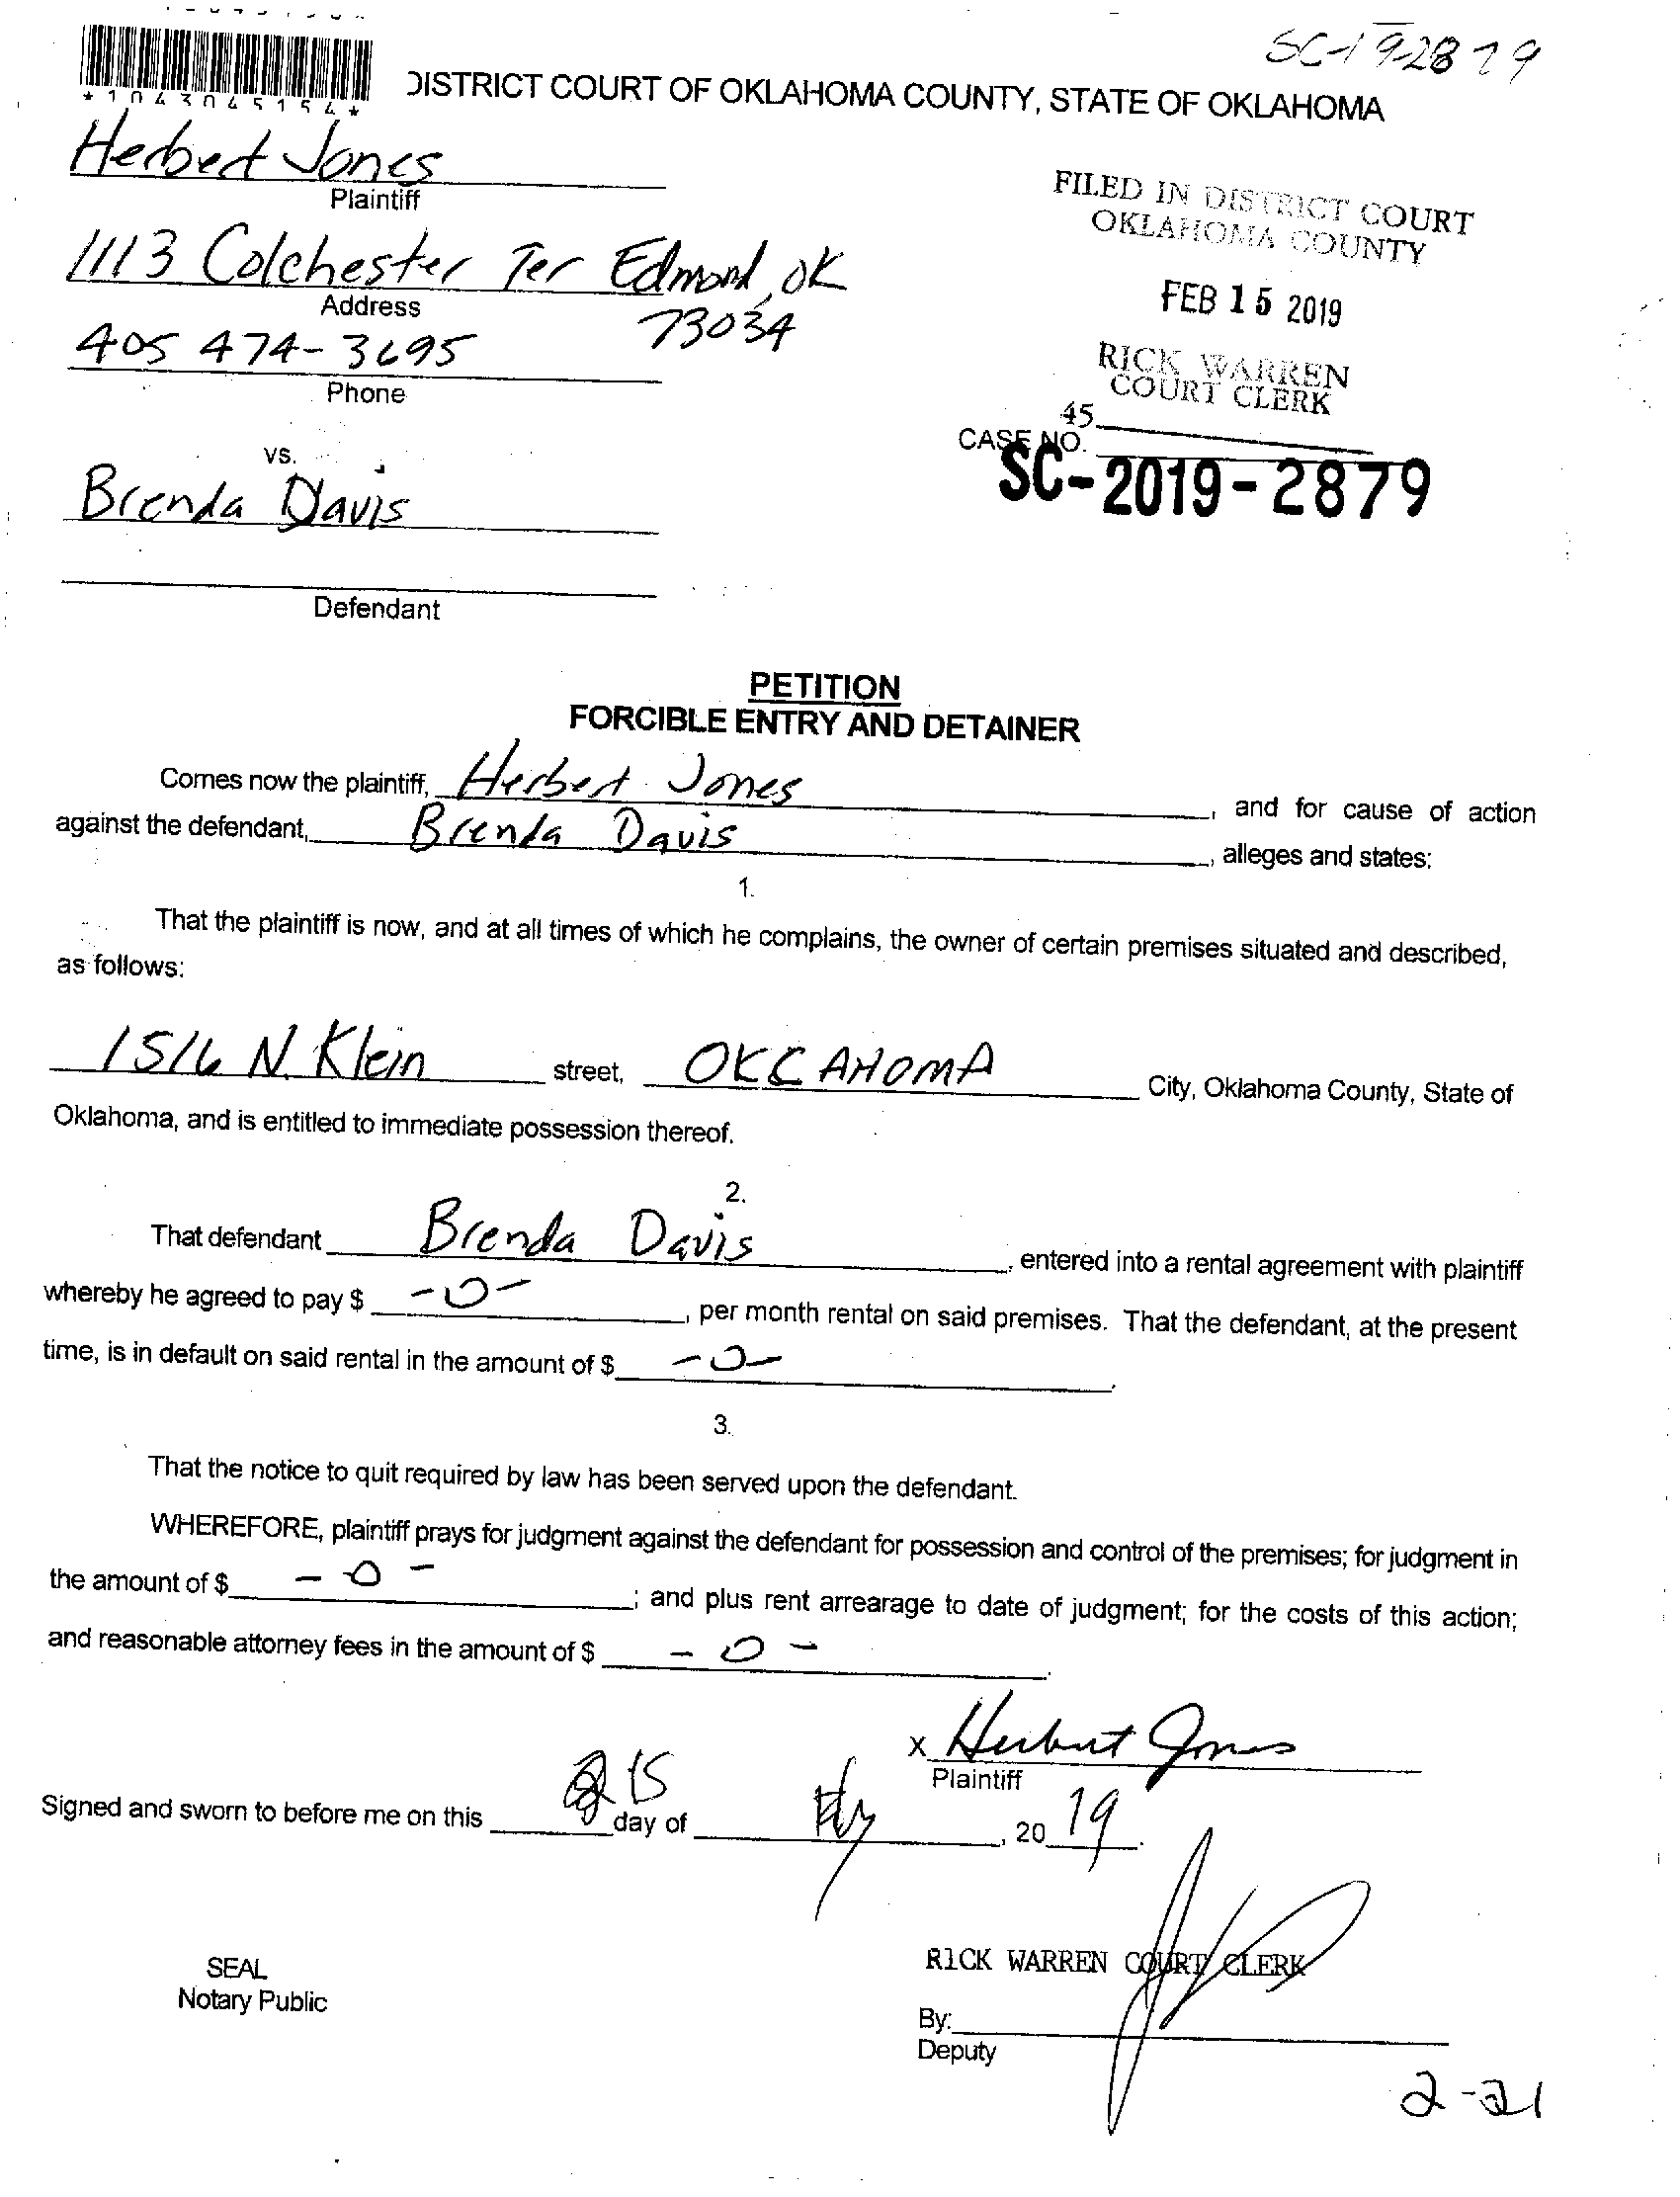 SC-19-2879
*1043045154*
DISTRICT COURT OF OKLAHOMA COUNTY, STATE OF OKLAHOMA
Herbert Jones
Plaintiff
FILED IN DISTRICT COURT
OKLAHOMA COUNTY
1113 Colchester Ter Edmond, OK
Address
73034
FEB 15 2019
405 474-3695
Phone
RICK WARREN
COURT CLERK
45
CASE NO.
SC-2019-2879
vs.
Brenda Davis
Defendant
PETITION
FORCIBLE ENTRY AND DETAINER
Comes now the plaintiff, Herbert Jones, and for cause of action
against the defendant, Brenda Davis, alleges and states:
1.
That the plaintiff is now, and at all times of which he complains, the owner of certain premises situated and described,
as follows:
1516 N. Klein street, OKCAHOMA City, Oklahoma County, State of
Oklahoma, and is entitled to immediate possession thereof.
2.
That defendant Brenda Davis, entered into a rental agreement with plaintiff
whereby he agreed to pay $ -0-, per month rental on said premises. That the defendant, at the present
time, is in default on said rental in the amount of $ -0-.
3.
That the notice to quit required by law has been served upon the defendant.
WHEREFORE, plaintiff prays for judgment against the defendant for possession and control of the premises; for judgment in
the amount of $ -0-; and plus rent arrearage to date of judgment; for the costs of this action;
and reasonable attorney fees in the amount of $ -0-.
X Herbert Jones
Plaintiff
Signed and sworn to before me on this 15 day of , 2019.
SEAL
Notary Public
RICK WARREN COURT CLERK
By:
Deputy
2-21